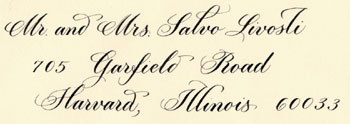 Mr. and Mrs. Salvo Livosti
705 Garfield Road
Harvard, Illinois 60033